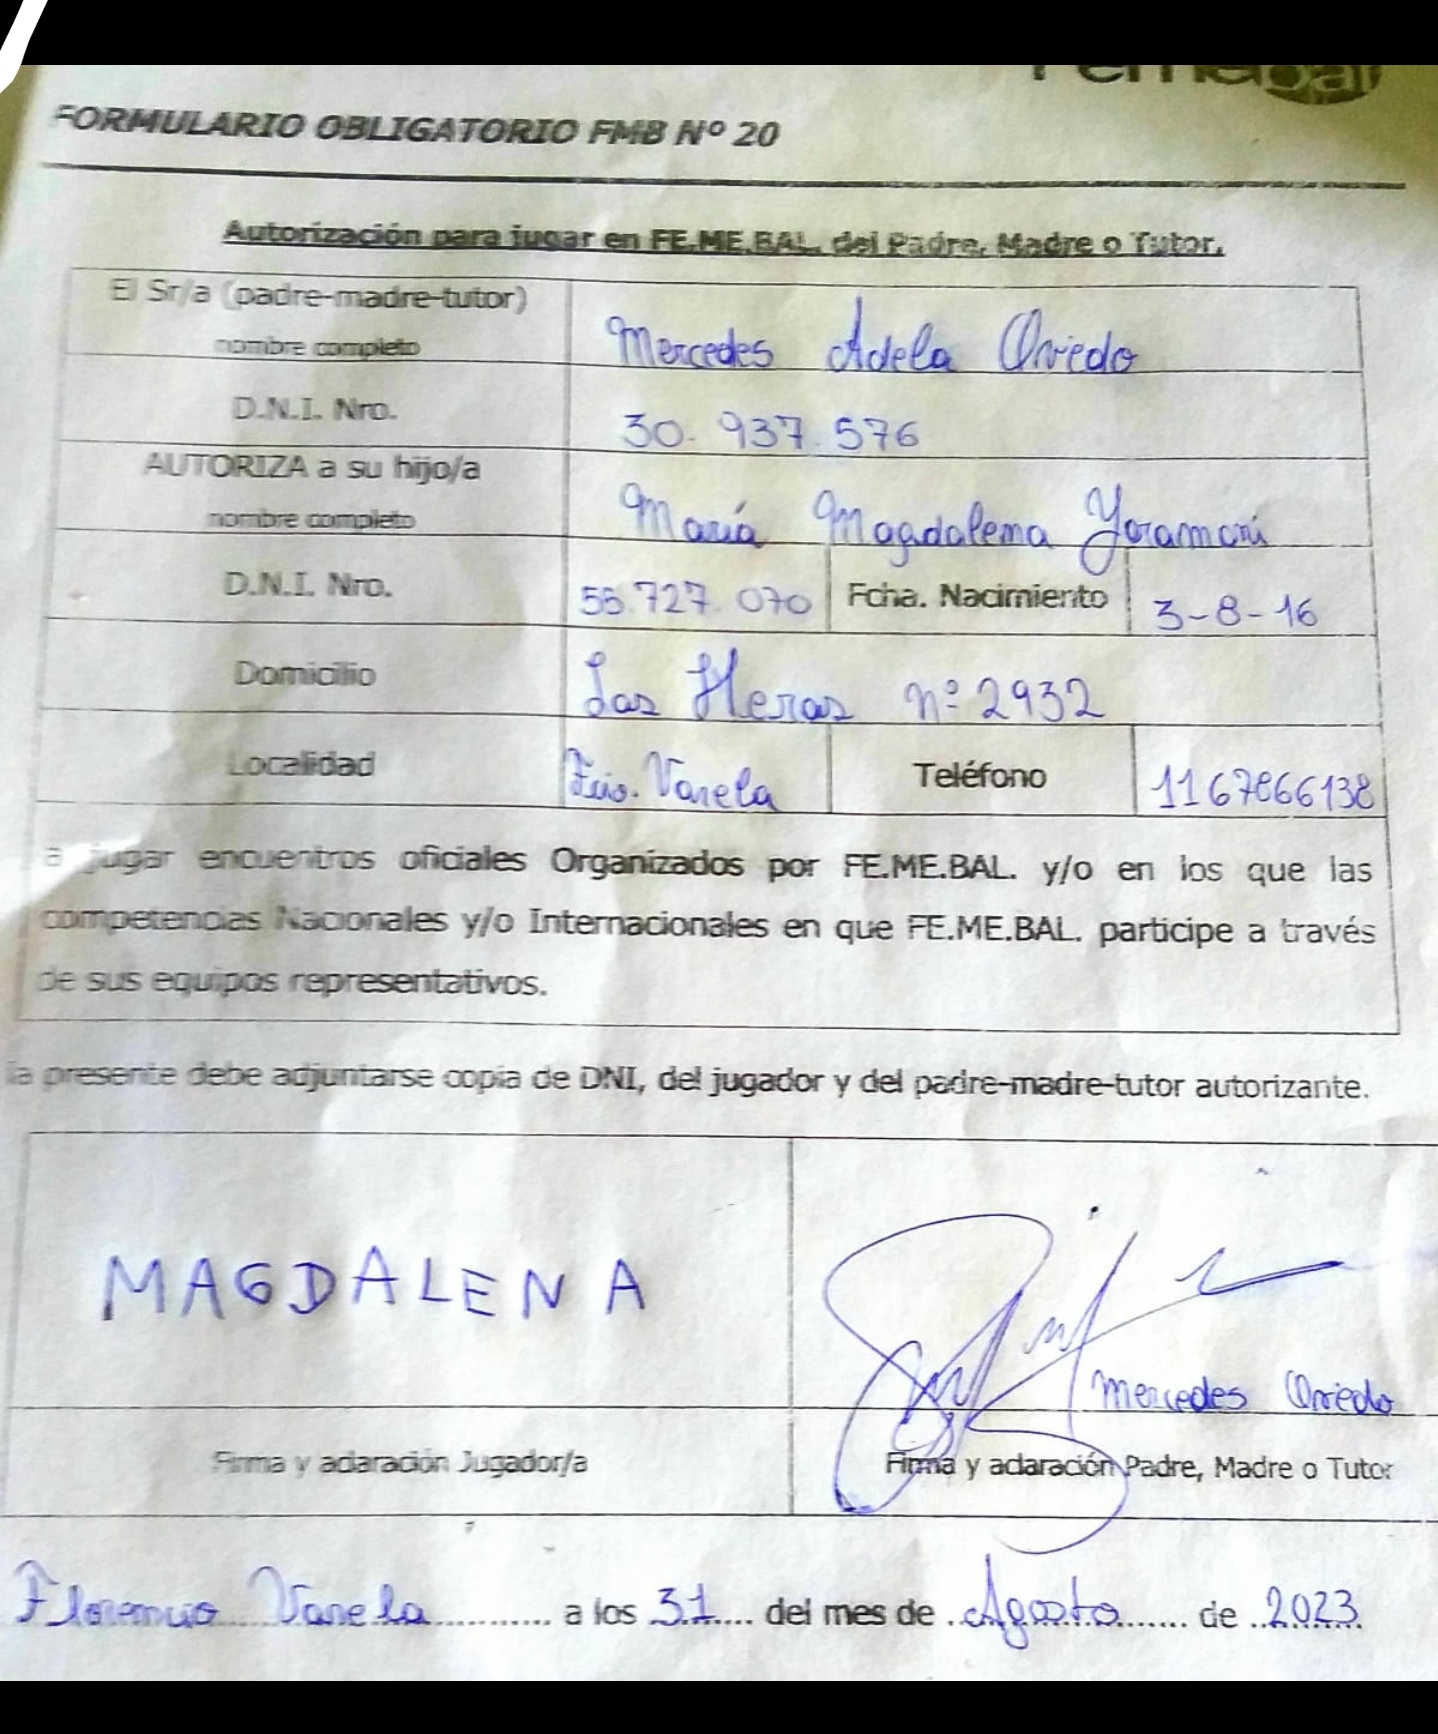 Femebal
FORMULARIO OBLIGATORIO FMB Nº 20
Autorización para jugar en FE.ME.BAL. del Padre, Madre o Tutor.
El Sr/a (padre-madre-tutor)
nombre completo
Mercedes Adela Oviedo
D.N.I. Nro.
30.937.576
AUTORIZA a su hijo/a
nombre completo
María Magdalena
D.N.I. Nro.
55.727.070
Fcha. Nacimiento
3-8-16
Domicilio
Las Heras nº 2932
Localidad
Fcio. Varela
Teléfono
1167866138
a jugar encuentros oficiales Organizados por FE.ME.BAL. y/o en los que las
competencias Nacionales y/o Internacionales en que FE.ME.BAL. participe a través
de sus equipos representativos.
la presente debe adjuntarse copia de DNI, del jugador y del padre-madre-tutor autorizante.
MAGDALENA
Mercedes Oviedo
Firma y aclaración Jugador/a
Firma y aclaración Padre, Madre o Tutor
Florencio Varela a los 31 del mes de Agosto de 2023